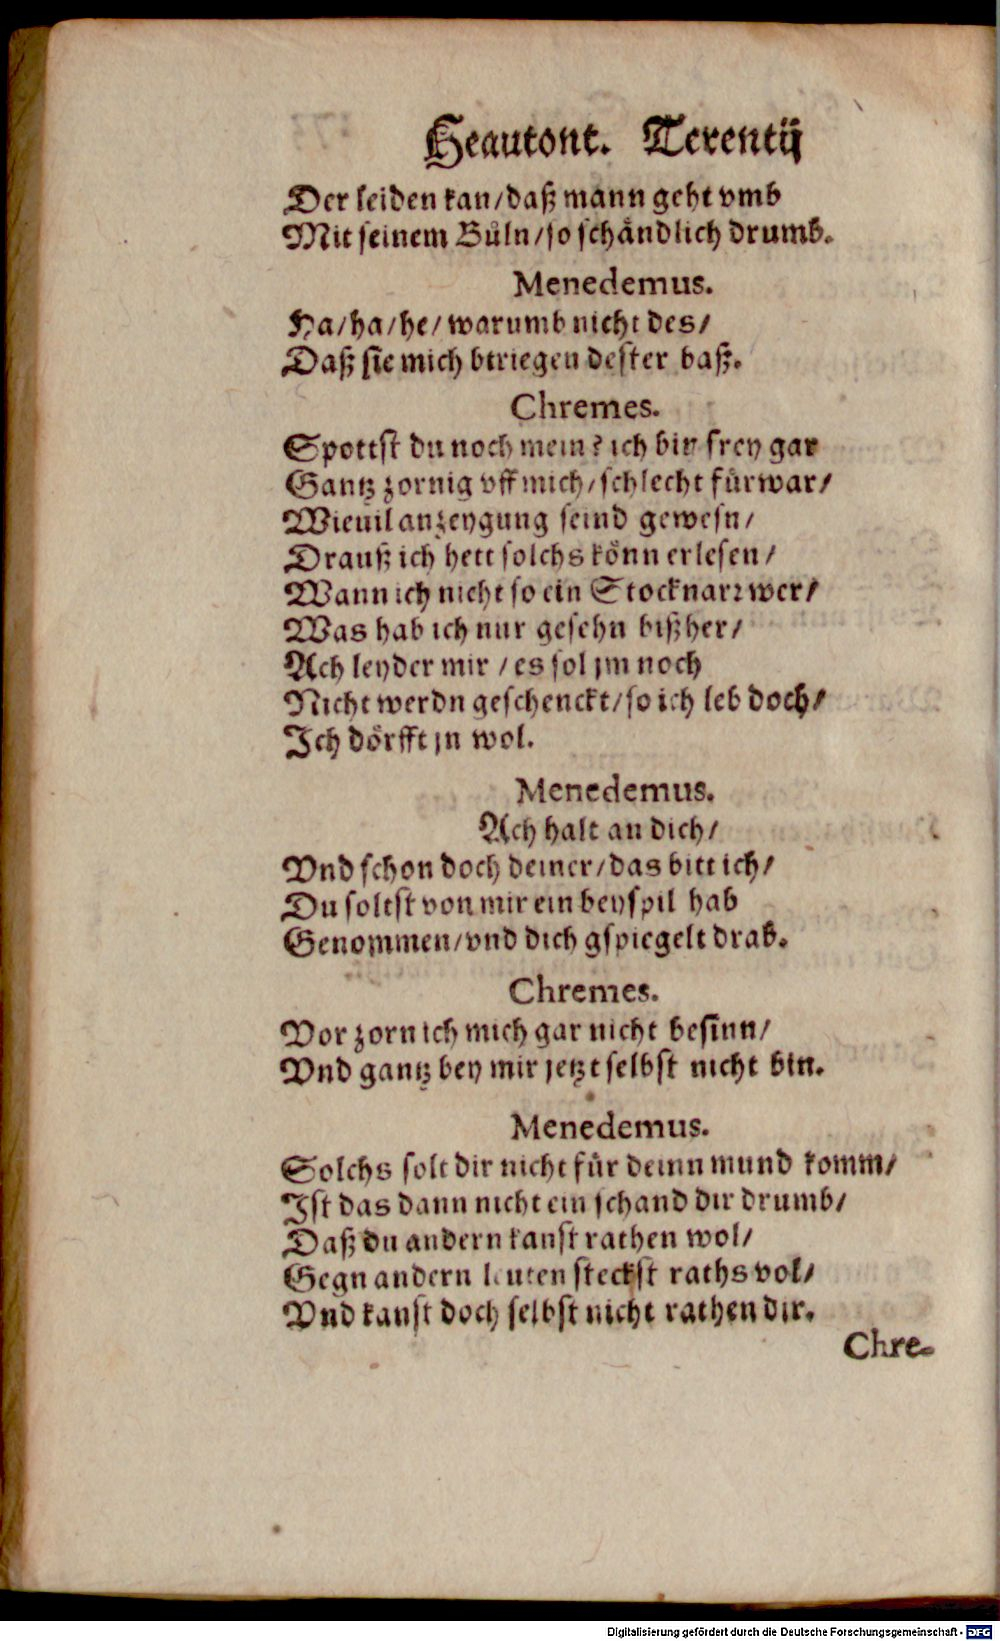 Heautont. Terentij
Der leiden kan/daß mann geht vmb
Mit seinem Bůln/so schåndlich drumb.
Menedemus.
Ha/ha/he/warumb nicht des/
Daß sie mich btriegen dester baß.
Chremes.
Spottst du noch mein? ich bin frey gar
Gantz zornig vff mich/schlecht fürwar/
Wieuil anzeygung seind gewesn/
Drauß ich hett solchs könn erlesen/
Wann ich nicht so ein Stocknarr wer/
Was hab ich nur gesehn bißher/
Ach leyder mir/es sol jm noch
Nicht werdn geschenckt/so ich leb doch/
Ich dörfft jn wol.
Menedemus.
Ach halt an dich/
Vnd schon doch deiner/das bitt ich/
Du soltst von mir ein beyspil hab
Genommen/vnd dich gspiegelt drab.
Chremes.
Vor zorn ich mich gar nicht besinn/
Vnd gantz bey mir jetzt selbst nicht bin.
Menedemus.
Solchs solt dir nicht für deinn mund komm/
Ist das dann nicht ein schand dir drumb/
Daß du andern kanst rathen wol/
Gegn andern leuten steckst raths vol/
Vnd kanst doch selbst nicht rathen dir.
Chre-
Digitalisierung gefördert durch die Deutsche Forschungsgemeinschaft - DFG